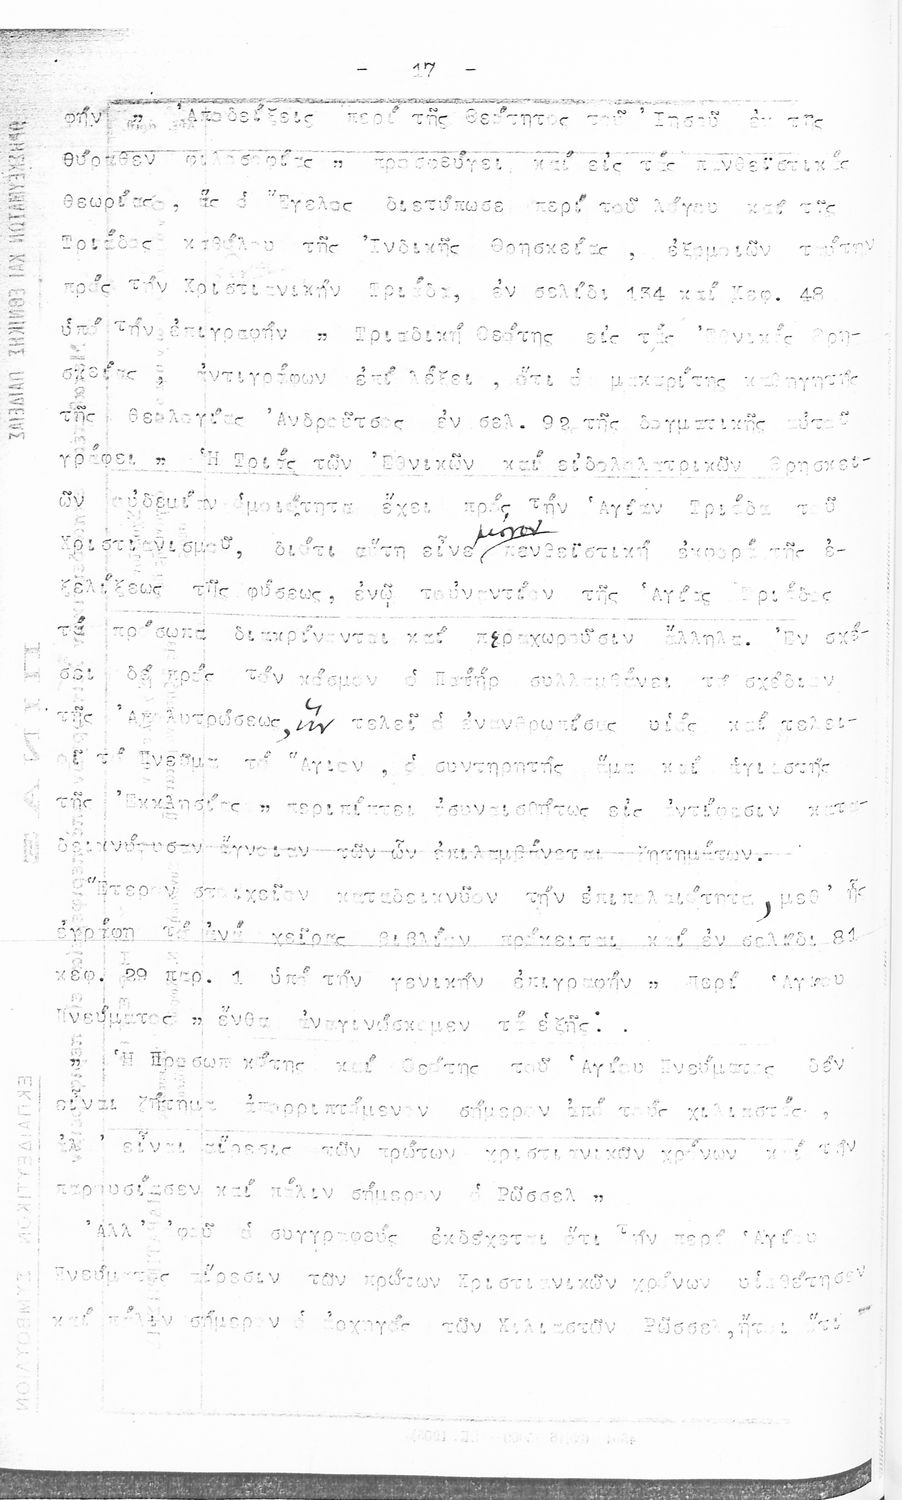 - 17 -
φήν „ Ἀποδείξεις περί τῆς Θεότητος τοῦ Ἰησοῦ ἐν τῇ
θύραθεν φιλοσοφίας „ προσφεύγει καί είς τάς πανθεϊστικάς
θεωρίας, ἅς ὁ Ἔγελος διετύπωσε περί τοῦ λόγου καί τῆς
Τριάδος καθόλου τῆς Ἰνδικῆς Θρησκείας, ἐξομοιῶν ταύτην
πρός τήν Χριστιανικήν Τριάδα, ἐν σελίδι 134 καί Κεφ. 48
ὑπό τήν ἐπιγραφήν „ Τριαδική Θεότης είς τάς Ἐθνικάς Θρη-
σκείας, ἀντιγράφων ἐπί λέξει, ὅτι ὁ μακαρίτης καθηγητής
τῆς Θεολογίας Ἀνδροῦτσος ἐν σελ. 92 τῆς δογματικῆς αὐτοῦ
γράφει „ Ἡ Τριάς τῶν Ἐθνικῶν καί είδωλολατρικῶν Θρησκει-
ῶν οὐδεμίαν ὁμοιότητα ἔχει πρός τήν Ἁγίαν Τριάδα τοῦ
Χριστιανισμοῦ, διότι αὕτη εἶνε μόνον πενθεϊστική ἐκφορά τῆς ἐ-
ξελίξεως τῆς φύσεως, ἐνῷ τοὐναντίον τῆς Ἁγίας Τριάδος
τά πρόσωπα διακρίνονται καί περαχωροῦσιν ἄλληλα. Ἐν σχέ-
σει δέ πρός τόν κόσμον ὁ Πατήρ συλλαμβάνει τό σχέδιον
τῆς Ἀπολυτρώσεως, ἥν τελεῖ ὁ ἐνανθρωπίσας υἱός καί τελει-
οῖ τό Πνεῦμα τό Ἅγιον, ὁ συντηρητής ἅμα καί ἁγιαστής
τῆς Ἐκκλησίας „ περιπίπτει ἀσυναισθήτως είς ἀντίφασιν κατα-
δεικνύουσαν ἄγνοιαν τῶν ὧν ἐπιλαμβάνεται ζητημάτων.
Ἕτερον στοιχεῖον καταδεικνῦον τήν ἐπιπολαιότητα, μεθ' ἧς
ἐγράφη τό ἀνά χεῖρας βιβλίον πρόκειται καί ἐν σελίδι 81
κεφ. 29 παρ. 1 ὑπό τήν γενικήν ἐπιγραφήν „ Περί Ἁγίου
Πνεύματος „ ἔνθα ἀναγινώσκομεν τά ἑξῆς: .
„ Ἡ Προσωπ κότης καί Θεότης τοῦ Ἁγίου Πνεύματος δέν
εἶναι ζήτημα ἀπορριπτόμενον σήμερον ἀπό τούς χιλιαστάς,
ἀλ ' εἶναι αἵρεσις τῶν πρώτων χριστιανικῶν χρόνων καί τήν
παρουσίασεν καί πάλιν σήμερον ὁ Ρῶσσελ „
Ἀλλ' 'φοῦ ὁ συγγραφεύς ἐκδέχεται ὅτι τήν περί Ἁγίου
Πνεύματος αἵρεσιν τῶν πρώτων Χριστιανικῶν χρόνων υἱοθέτησεν
καί πάλιν σήμερον ὁ ἀρχηγός τῶν Χιλιαστῶν Ρῶσσελ, ἤτοι ὅτι